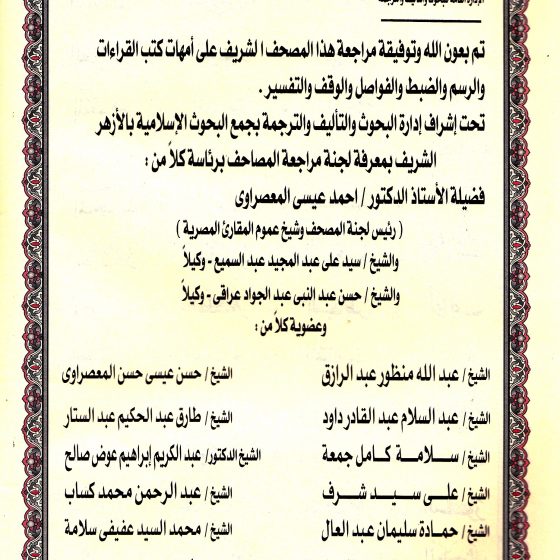 تم بعون الله وتوفيقة مراجعة هذا المصحف الشريف على أمهات كتب القراءات
والرسم والضبط والفواصل والوقف والتفسير .
تحت إشراف إدارة البحوث والتأليف والترجمة بجمع البحوث الإسلامية بالأزهر
الشريف بمعرفة لجنة مراجعة المصاحف برئاسة كلاً من :
فضيلة الأستاذ الدكتور / احمد عيسى المعصراوى
( رئيس لجنة المصحف وشيخ عموم المقارئ المصرية )
والشيخ / سيد على عبد المجيد عبد السميع - وكيلاً
والشيخ / حسن عبد النبى عبد الجواد عراقى - وكيلاً
وعضوية كلاً من :
الشيخ / عبد الله منظور عبد الرازق الشيخ / حسن عيسى حسن المعصراوى
الشيخ / عبد السلام عبد القادر داود الشيخ / طارق عبد الحكيم عبد الستار
الشيخ / سلامة كامل جمعة الشيخ الدكتور / عبد الكريم إبراهيم عوض صالح
الشيخ / على سيد شرف الشيخ / عبد الرحمن محمد كساب
الشيخ / حمادة سليمان عبد العال الشيخ / محمد السيد عفيفى سلامة